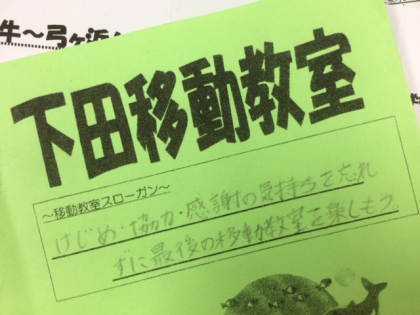 牛～弓ヶ浜
下田移動教室
～移動教室スローガン～
けじめ・協力・感謝の気持ちを忘れ
ずに最後の移動教室を楽しもう